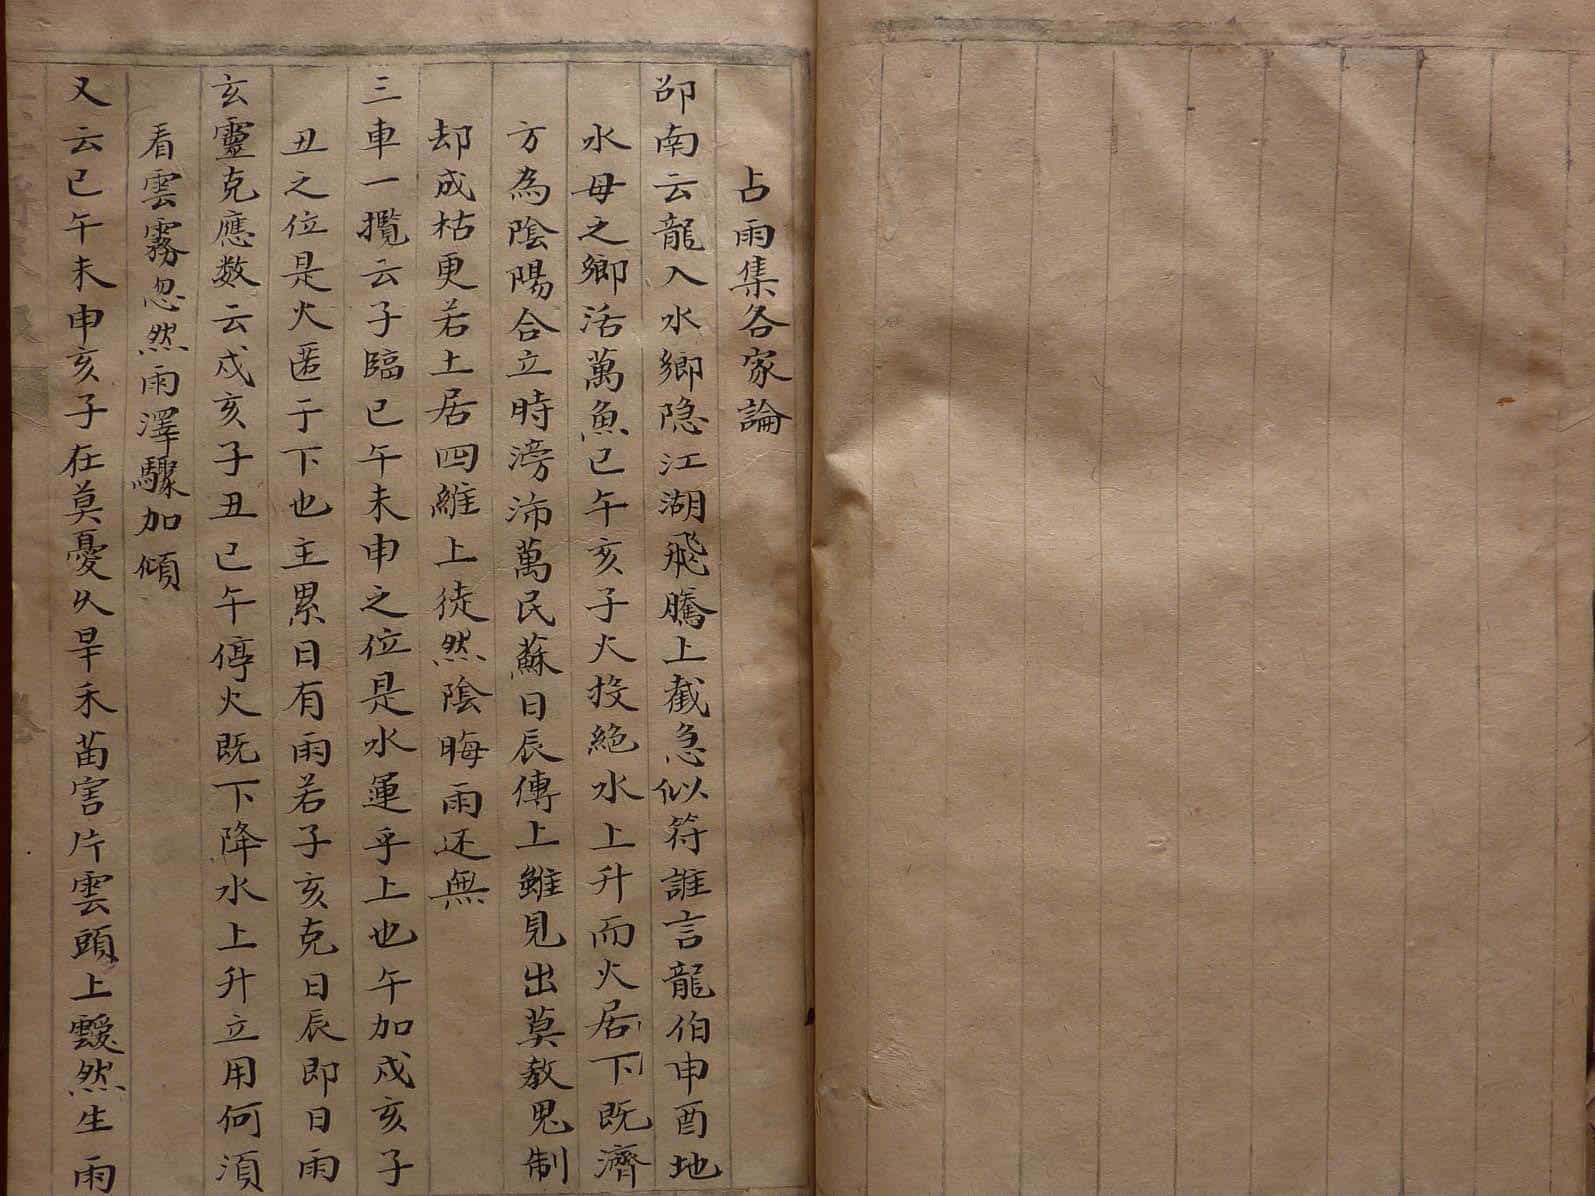 占雨集各家論
邵南云龍入水鄉隐江湖飛騰上截急似符誰言龍伯申酉地
水母之鄉活萬魚巳午亥子火投絕水上升而火居下既濟
方為陰陽合立時滂沛萬民蘇日辰傳上雖見出莫教鬼制
却成枯更若土居四維上徒然陰晦雨还無
三車一攬云子臨巳午未申之位是水運乎上也午加戍亥子
丑之位是火匿于下也主累日有雨若子亥克日辰即日雨
玄靈克應数云戍亥子丑巳午停火既下降水上升立用何湏
看雲霧忽然雨澤驟加傾
又云巳午未申亥子在莫憂久旱禾苗害片雲頭上靉然生雨